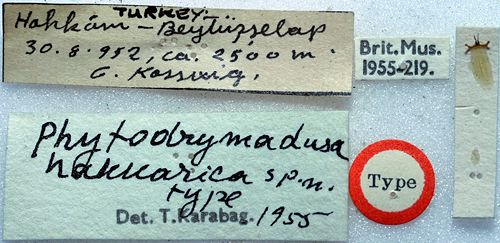 TURKEY:-
Hakkâri - Beytüşşelap
30.8.952, ca. 2500 m.
C. Kosswig.
Brit. Mus.
1955-219.
Phytodrymadusa
hakkarica sp.n.
type
Det. T. Karabag. 1955
Type